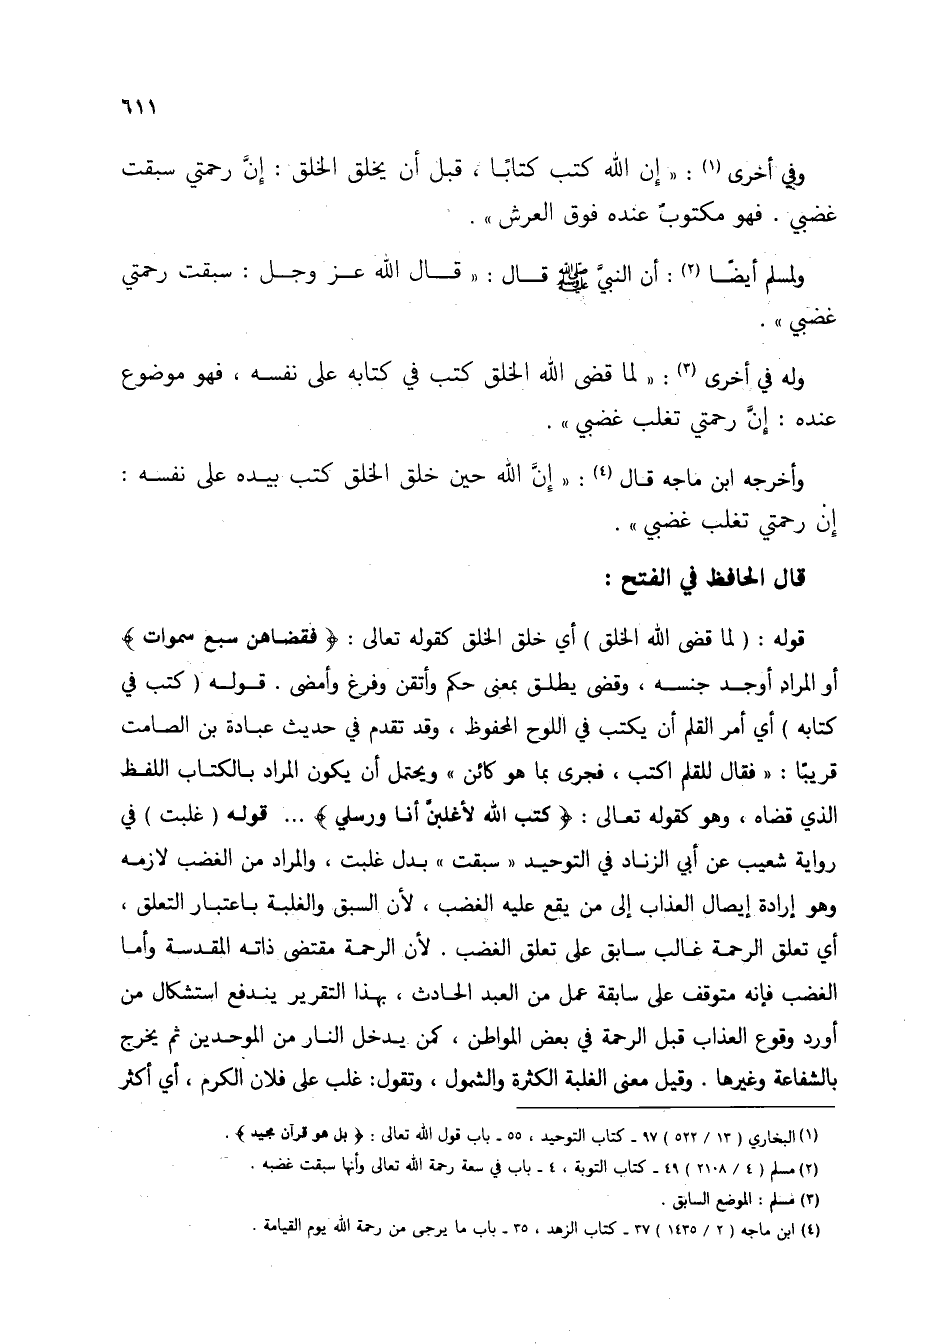 ٦١١
وفي أخرى (١) : « إن الله كتب كتابًا ، قبل أن يخلق الخلق : إنَّ رحمتي سبقت
غضبي . فهو مكتوبٌ عنده فوق العرش » .
ولمسلم أيضًا (٢) : أن النبيَّ ﷺ قال : « قال الله عز وجل : سبقت رحمتي
غضبي » .
وله في أخرى (٣) : « لما قضى الله الخلق كتب في كتابه على نفسه ، فهو موضوع
عنده : إنَّ رحمتي تغلب غضبي » .
وأخرجه ابن ماجه قال (٤) : « إنَّ الله حين خلق الخلق كتب بيده على نفسه :
إنْ رحمتي تغلب غضبي » .
قال الحافظ في الفتح :
قوله : ( لما قضى الله الخلق ) أي خلق الخلق كقوله تعالى : ﴿ فقضاهن سبع سموات ﴾
أو المراد أوجد جنسه ، وقضى يطلق بمعنى حكم وأتقن وفرغ وأمضى . قوله ( كتب في
كتابه ) أي أمر القلم أن يكتب في اللوح المحفوظ ، وقد تقدم في حديث عبادة بن الصامت
قريبًا : « فقال للقلم اكتب ، فجرى بما هو كائن » ويحتمل أن يكون المراد بالكتاب اللفظ
الذي قضاه ، وهو كقوله تعالى : ﴿ كتب الله لأغلبنَّ أنا ورسلي ﴾ ... قوله ( غلبت ) في
رواية شعيب عن أبي الزناد في التوحيد « سبقت » بدل غلبت ، والمراد من الغضب لازمه
وهو إرادة إيصال العذاب إلى من يقع عليه الغضب ، لأن السبق والغلبة باعتبار التعلق ،
أي تعلق الرحمة غالب سابق على تعلق الغضب . لأن الرحمة مقتضى ذاته المقدسة وأما
الغضب فإنه متوقف على سابقة عمل من العبد الحادث ، بهذا التقرير يندفع استشكال من
أورد وقوع العذاب قبل الرحمة في بعض المواطن ، كمن يدخل النار من الموحدين ثم يخرج
بالشفاعة وغيرها . وقيل معنى الغلبة الكثرة والشمول ، وتقول: غلب على فلان الكرم ، أي أكثر
(١) البخاري ( ١٣ / ٥٢٢ ) ٩٧ ـ كتاب التوحيد ، ٥٥ ـ باب قول الله تعالى : ﴿ بل هو قرآن مجيد ﴾ .
(٢) مسلم ( ٤ / ٢١٠٨ ) ٤٩ ـ كتاب التوبة ، ٤ ـ باب في سعة رحمة الله تعالى وأنها سبقت غضبه .
(٣) مسلم : الموضع السابق .
(٤) ابن ماجه ( ٢ / ١٤٣٥ ) ٣٧ ـ كتاب الزهد ، ٣٥ ـ باب ما يرجى من رحمة الله يوم القيامة .